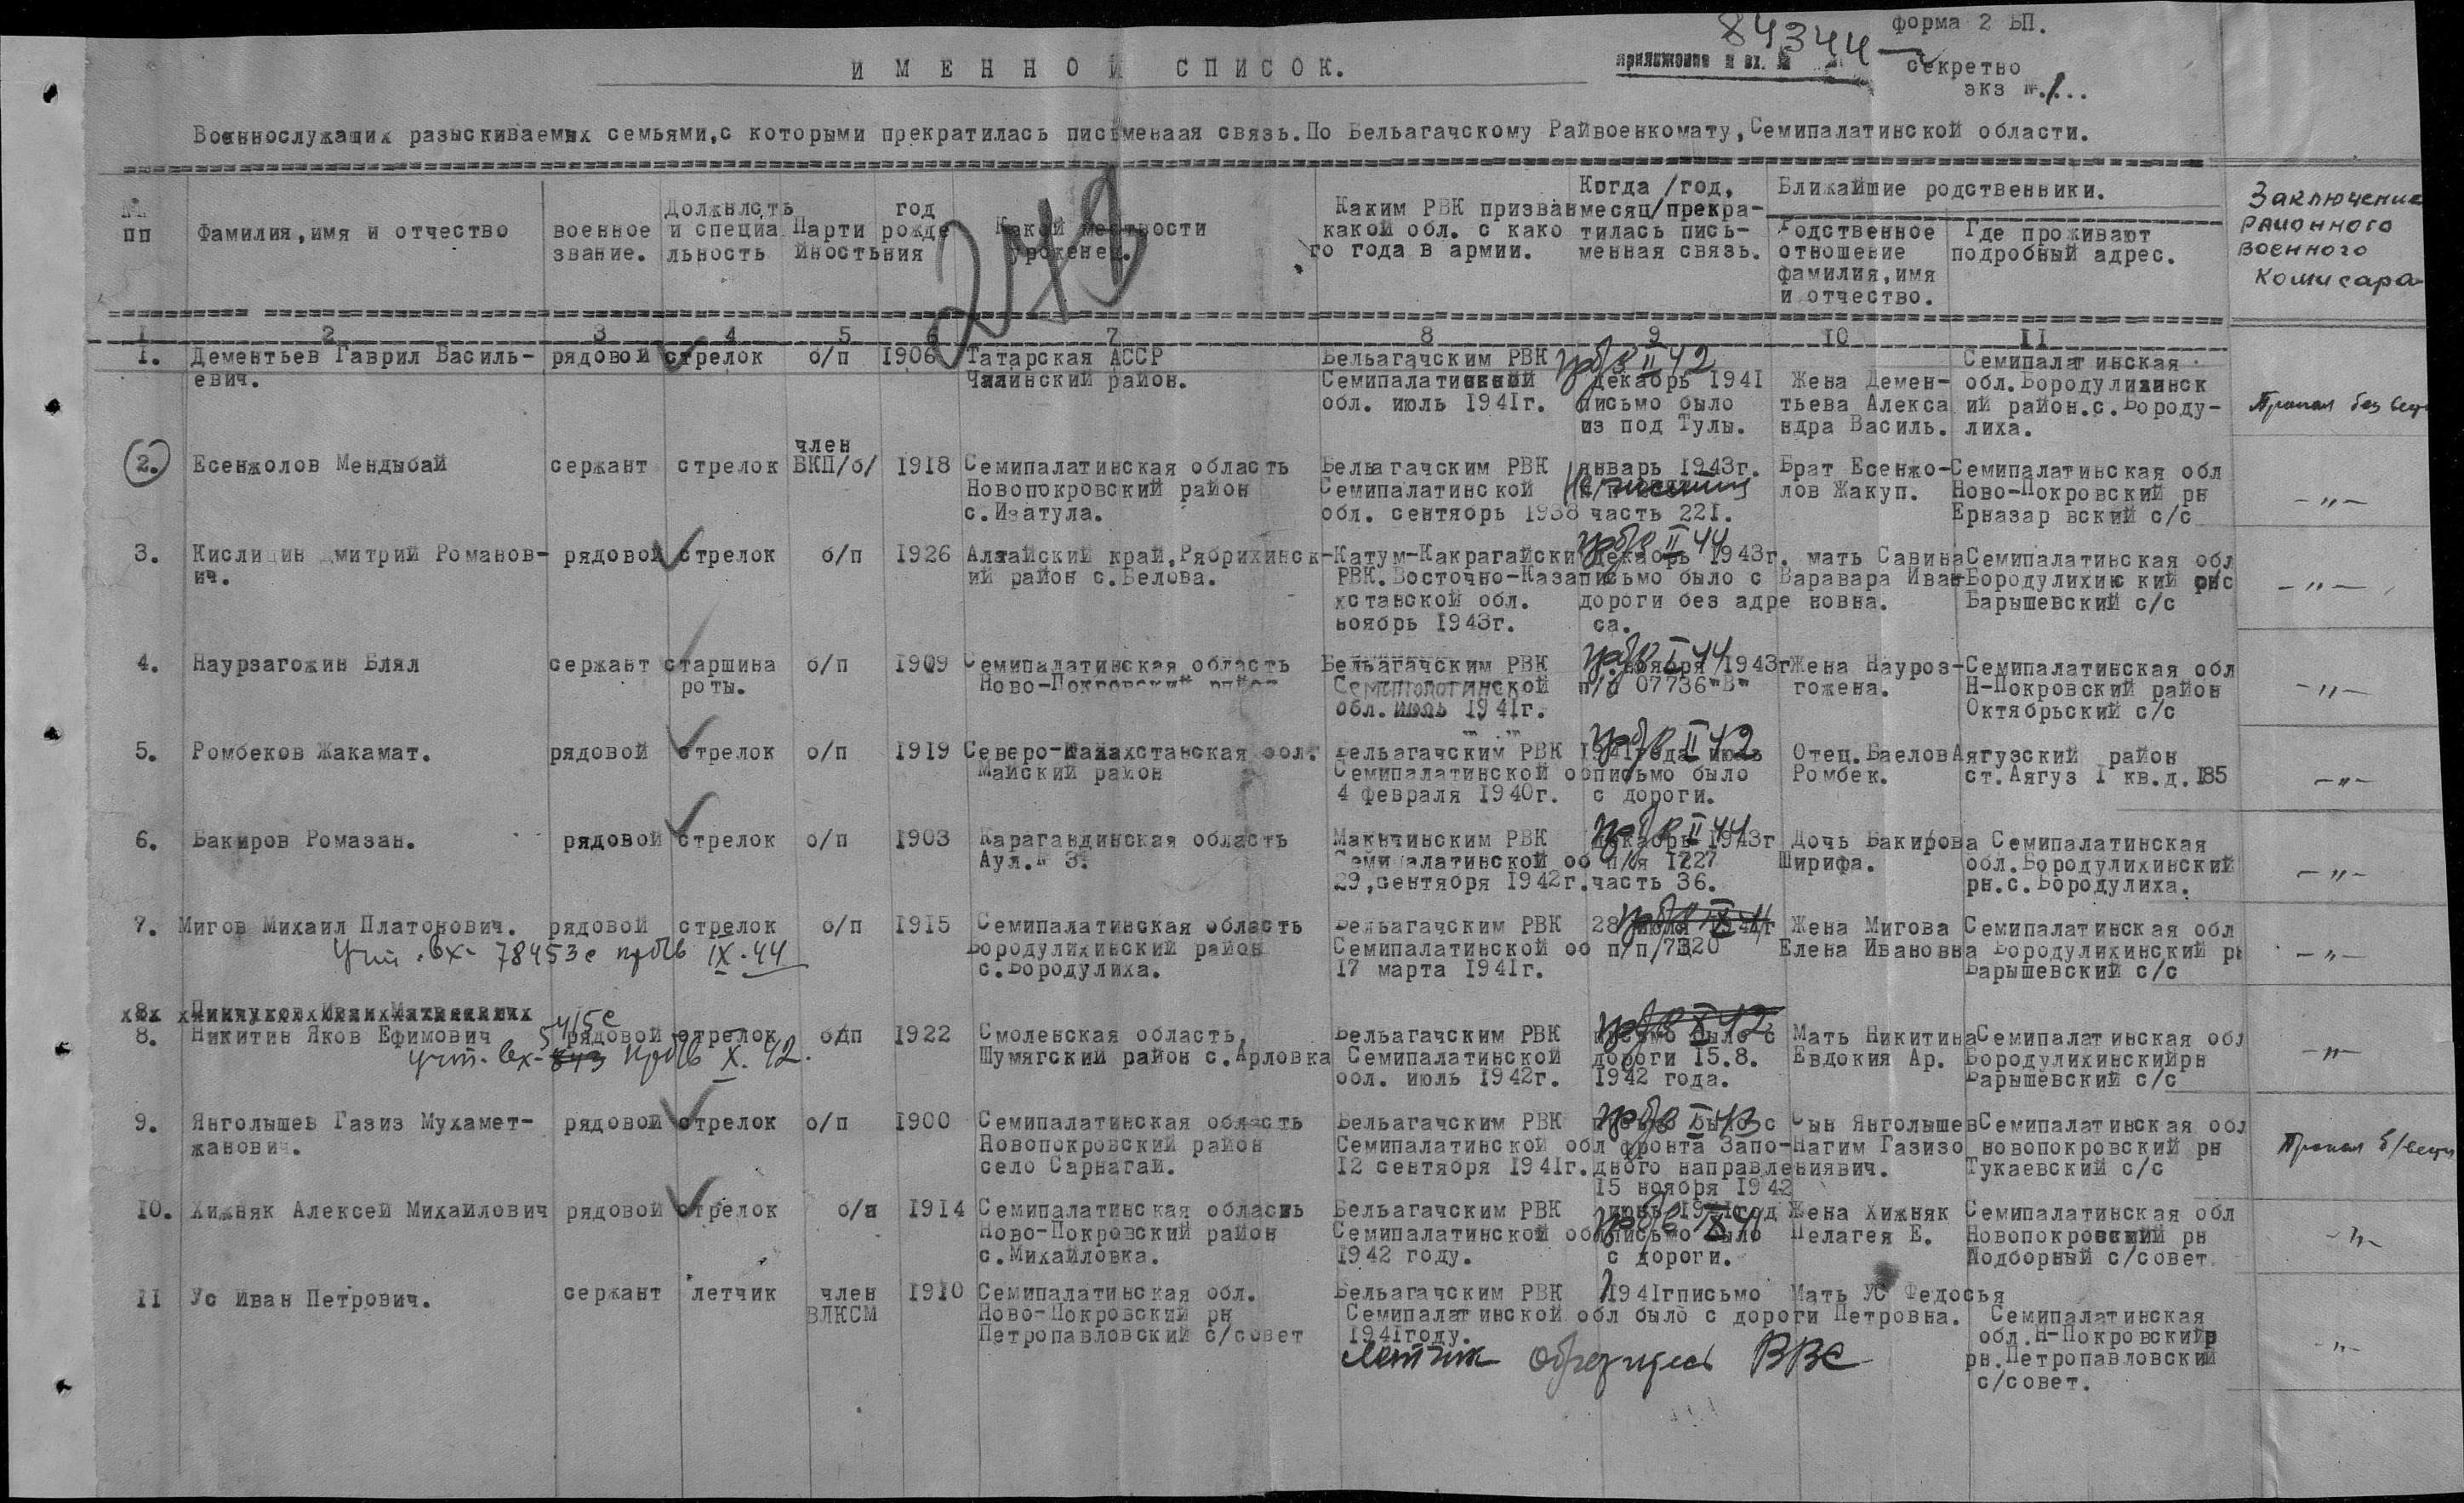 84344
форма 2 БП.
приложение к вх. №
секретно
экз №.1...
ИМЕННОЙ СПИСОК.
Военнослужащих разыскиваемых семьями, с которыми прекратилась письменаая связь. По Бельагачскому Райвоенкомату, Семипалатинской области.
№№ пп
Фамилия, имя и отчество
военное звание.
Должнлсть и специальность
Парти йность
год рожде ния
Какой местности уроженец.
Каким РВК призван какой обл. с како го года в армии.
Когда /год, месяц/прекра- тилась пись- менная связь.
Ближайшие родственники.
Родственное отношение фамилия, имя и отчество.
Где проживают подробный адрес.
Заключение районного военного комисара
270
1 2 3 4 5 6 7 8 9 10 11
1. Дементьев Гаврил Василь- рядовой стрелок б/п 1906 Татарская АССР Бельагачским РВК пр б/в II 42 Семипалатинская
евич. Чялинский район. Семипалатинской декабрь 1941 Жена Демен- обл. Бородулихинск
обл. июль 1941г. письмо было тьева Алекса ий район. с. Бороду- Пропал без вести
из под Тулы. ндра Василь. лиха.
член
2. Есенжолов Мендыбай сержант стрелок ВКП/б/ 1918 Семипалатинская область Бельагачским РВК январь 1943г. Брат Есенжо- Семипалатинская обл
Новопокровский район Семипалатинской лов Жакуп. Ново-Покровский рн -"-
с. Изатула. обл. сентябрь 1938 часть 221. Ерназар вский с/с
3. Кислицин Дмитрий Романов- рядовой стрелок б/п 1926 Алтайский край, Рябрихинск- Катум-Какрагайски пр б/в II 44 декабрь 1943г. мать Савина Семипалатинская обл
ич. ий район с. Белова. РВК. Восточно-Каза письмо было с Варавара Иван Бородулихинс кий рн -"-
хстанской обл. дороги без адре новна. Барышевский с/с
ноябрь 1943г. са.
4. Наурзагожин Блял сержант старшина б/п 1909 Семипалатинская область Бельагачским РВК пр б/в I 44 ноября 1943г Жена Науроз- Семипалатинская обл
роты. Ново-Покровский район Семипалатинской п/п 07736"В" гожена. Н-Покровский район -"-
обл. июль 1941г. Октябрьский с/с
5. Ромбеков Жакамат. рядовой стрелок б/п 1919 Северо-Казахстанская обл. Бельагачским РВК пр б/в II 42 1941 года июль Отец. Баелов Аягузский район
Майский район Семипалатинской об письмо было Ромбек. ст. Аягуз 1 кв. д. 185 -"-
4 февраля 1940г. с дороги.
6. Бакиров Ромазан. рядовой стрелок б/п 1903 Карагандинская область Маканчинским РВК пр б/в II 44 декабрь 1943г Дочь Бакирова Семипалатинская
Аул. № 3. Семипалатинской об п/я 1727 Ширифа. обл. Бородулихинский -"-
29, сентября 1942г. часть 36. рн. с. Бородулиха.
7. Мигов Михаил Платонович. рядовой стрелок б/п 1915 Семипалатинская область Бельагачским РВК 28 июля 1941г Жена Мигова Семипалатинская обл
учт. вх- 78453с пр б/в IX.44 Бородулихинский район Семипалатинской об п/п/7320 Елена Ивановна Бородулихинский рн -"-
с. Бородулиха. 17 марта 1941г. Барышевский с/с
8. Никитин Яков Ефимович рядовой стрелок б/п 1922 Смоленская область, Бельагачским РВК пр б/в X 42 письмо было с Мать Никитина Семипалатинская обл
5415с
учт. вх- пр б/в X. 42. Шумягский район с. Арловка Семипалатинской дороги 15.8. Евдокия Ар. Бородулихинский рн -"-
обл. июль 1942г. 1942 года. Барышевский с/с
9. Янголышев Газиз Мухамет- рядовой стрелок б/п 1900 Семипалатинская область Бельагачским РВК пр б/в I 43 письмо было с Сын Янголышев Семипалатинская обл
жанович. Новопокровский район Семипалатинской обл фронта Запо- Нагим Газизо новопокровский рн Пропал б/вести
село Сарнагай. 12 сентября 1941г. дного направления вич. Тукаевский с/с
15 ноября 1942
10. Хижняк Алексей Михайлович рядовой стрелок б/п 1914 Семипалатинская область Бельагачским РВК июнь 1941 год Жена Хижняк Семипалатинская обл
Ново-Покровский район Семипалатинской обл письмо было Пелагея Е. Новопокровский рн -"-
с. Михайловка. 1942 году. с дороги. Подборный с/совет
11 Ус Иван Петрович. сержант летчик член 1910 Семипалатинская обл. Бельагачским РВК 1941г письмо Мать Ус Федосья
ВЛКСМ Ново-Покровский рн Семипалатинской обл было с дороги Петровна. Семипалатинская
Петропавловский с/совет 1941году. обл. Н-Покровский -"-
летчик ВВС рн. Петропавловский
с/совет.